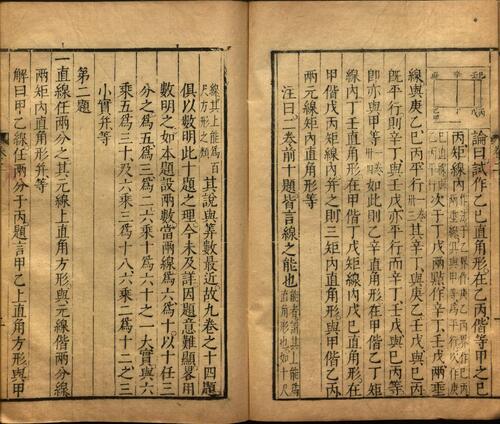 論曰試作乙巳直角形偕等甲之巳
丙矩線内
次于丁戊兩點作辛丁戊兩垂
線與庚乙巳丙平行
其辛丁與庚乙巳丙
既平行則辛丁與壬戊亦平行而辛丁壬戊與巳丙等
即亦與甲等
如此則乙辛直角形在甲偕乙丁矩
線内丁壬直角形在甲偕丁戊矩線内戊巳直角形在
甲偕戊丙矩線内并之則三矩内直角形與甲偕乙丙
兩元線矩内直角形等
注曰二卷前十題皆言線之能也
能者謂其上能爲
直角形也如十尺
線其上能爲百
尺方形之類
其説與算數最近故九卷之十四題
俱以數明此十題之理今未及詳因題意難顯畧用
數明之如本題設兩數當兩線爲六爲十以十任三
分之爲五爲三爲二六乘十爲六十之一大實與六
乘五爲三十及六乘三爲十八六乘二爲十二之三
小實并等
第二題
一直線任兩分之其元線上直角方形與元線偕兩分線
兩矩内直角形并等
解曰甲乙線任兩分于丙題言甲乙上直角方形與甲